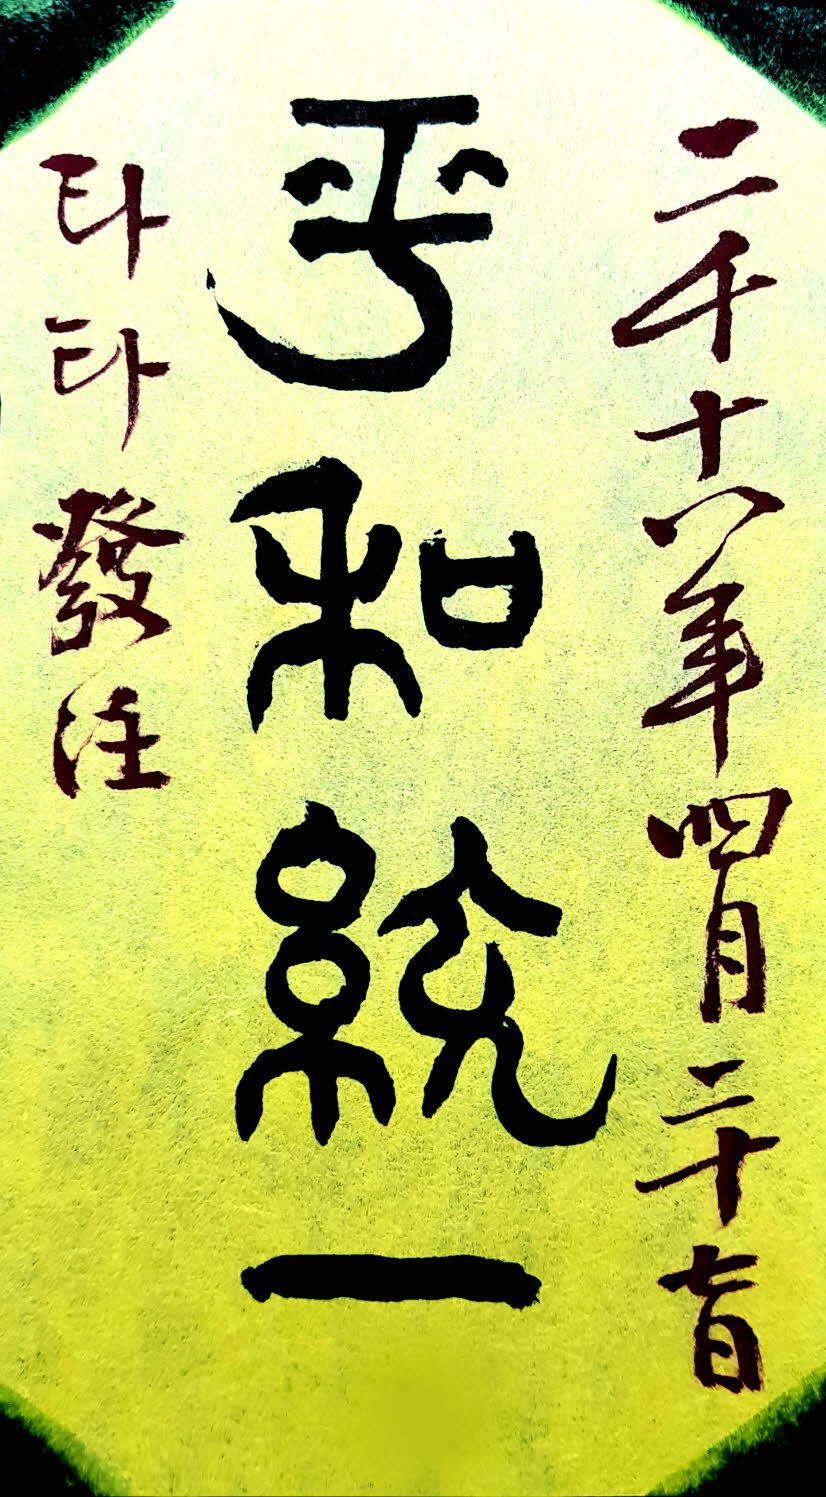 二千十八年四月二十七日
平和統一
타타發注